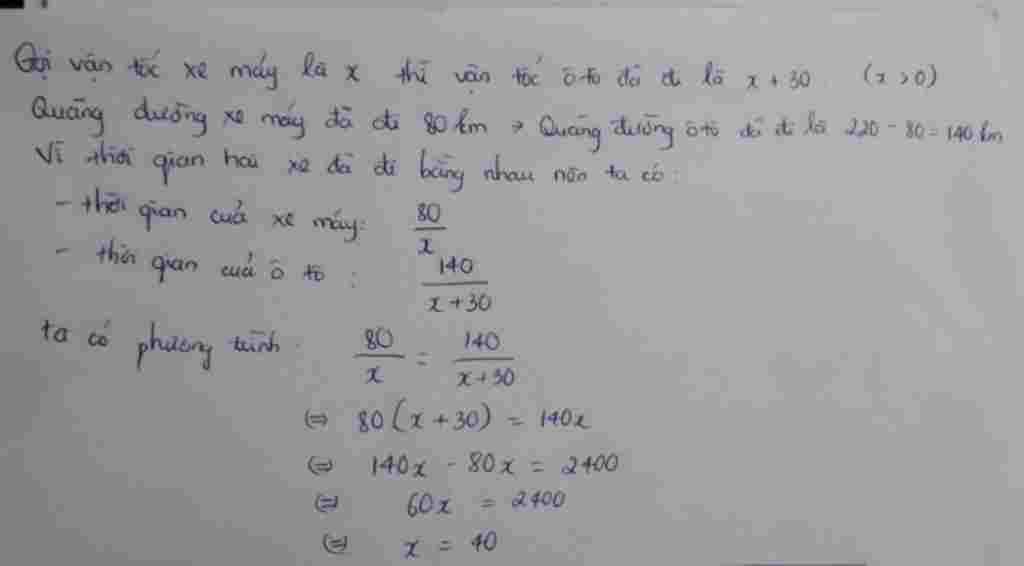 Gọi vận tốc xe máy là x thì vận tốc ô tô đã đi là x + 30 (x > 0)
Quãng đường xe máy đã đi 80 km → Quãng đường ô tô đã đi là 220 - 80 = 140 km
Vì thời gian hai xe đã đi bằng nhau nên ta có :
- thời gian của xe máy: 80/x
- thời gian của ô tô : 140/(x+30)
ta có phương trình : 80/x = 140/(x+30)
⇔ 80(x + 30) = 140x
⇔ 140x - 80x = 2400
⇔ 60x = 2400
⇔ x = 40